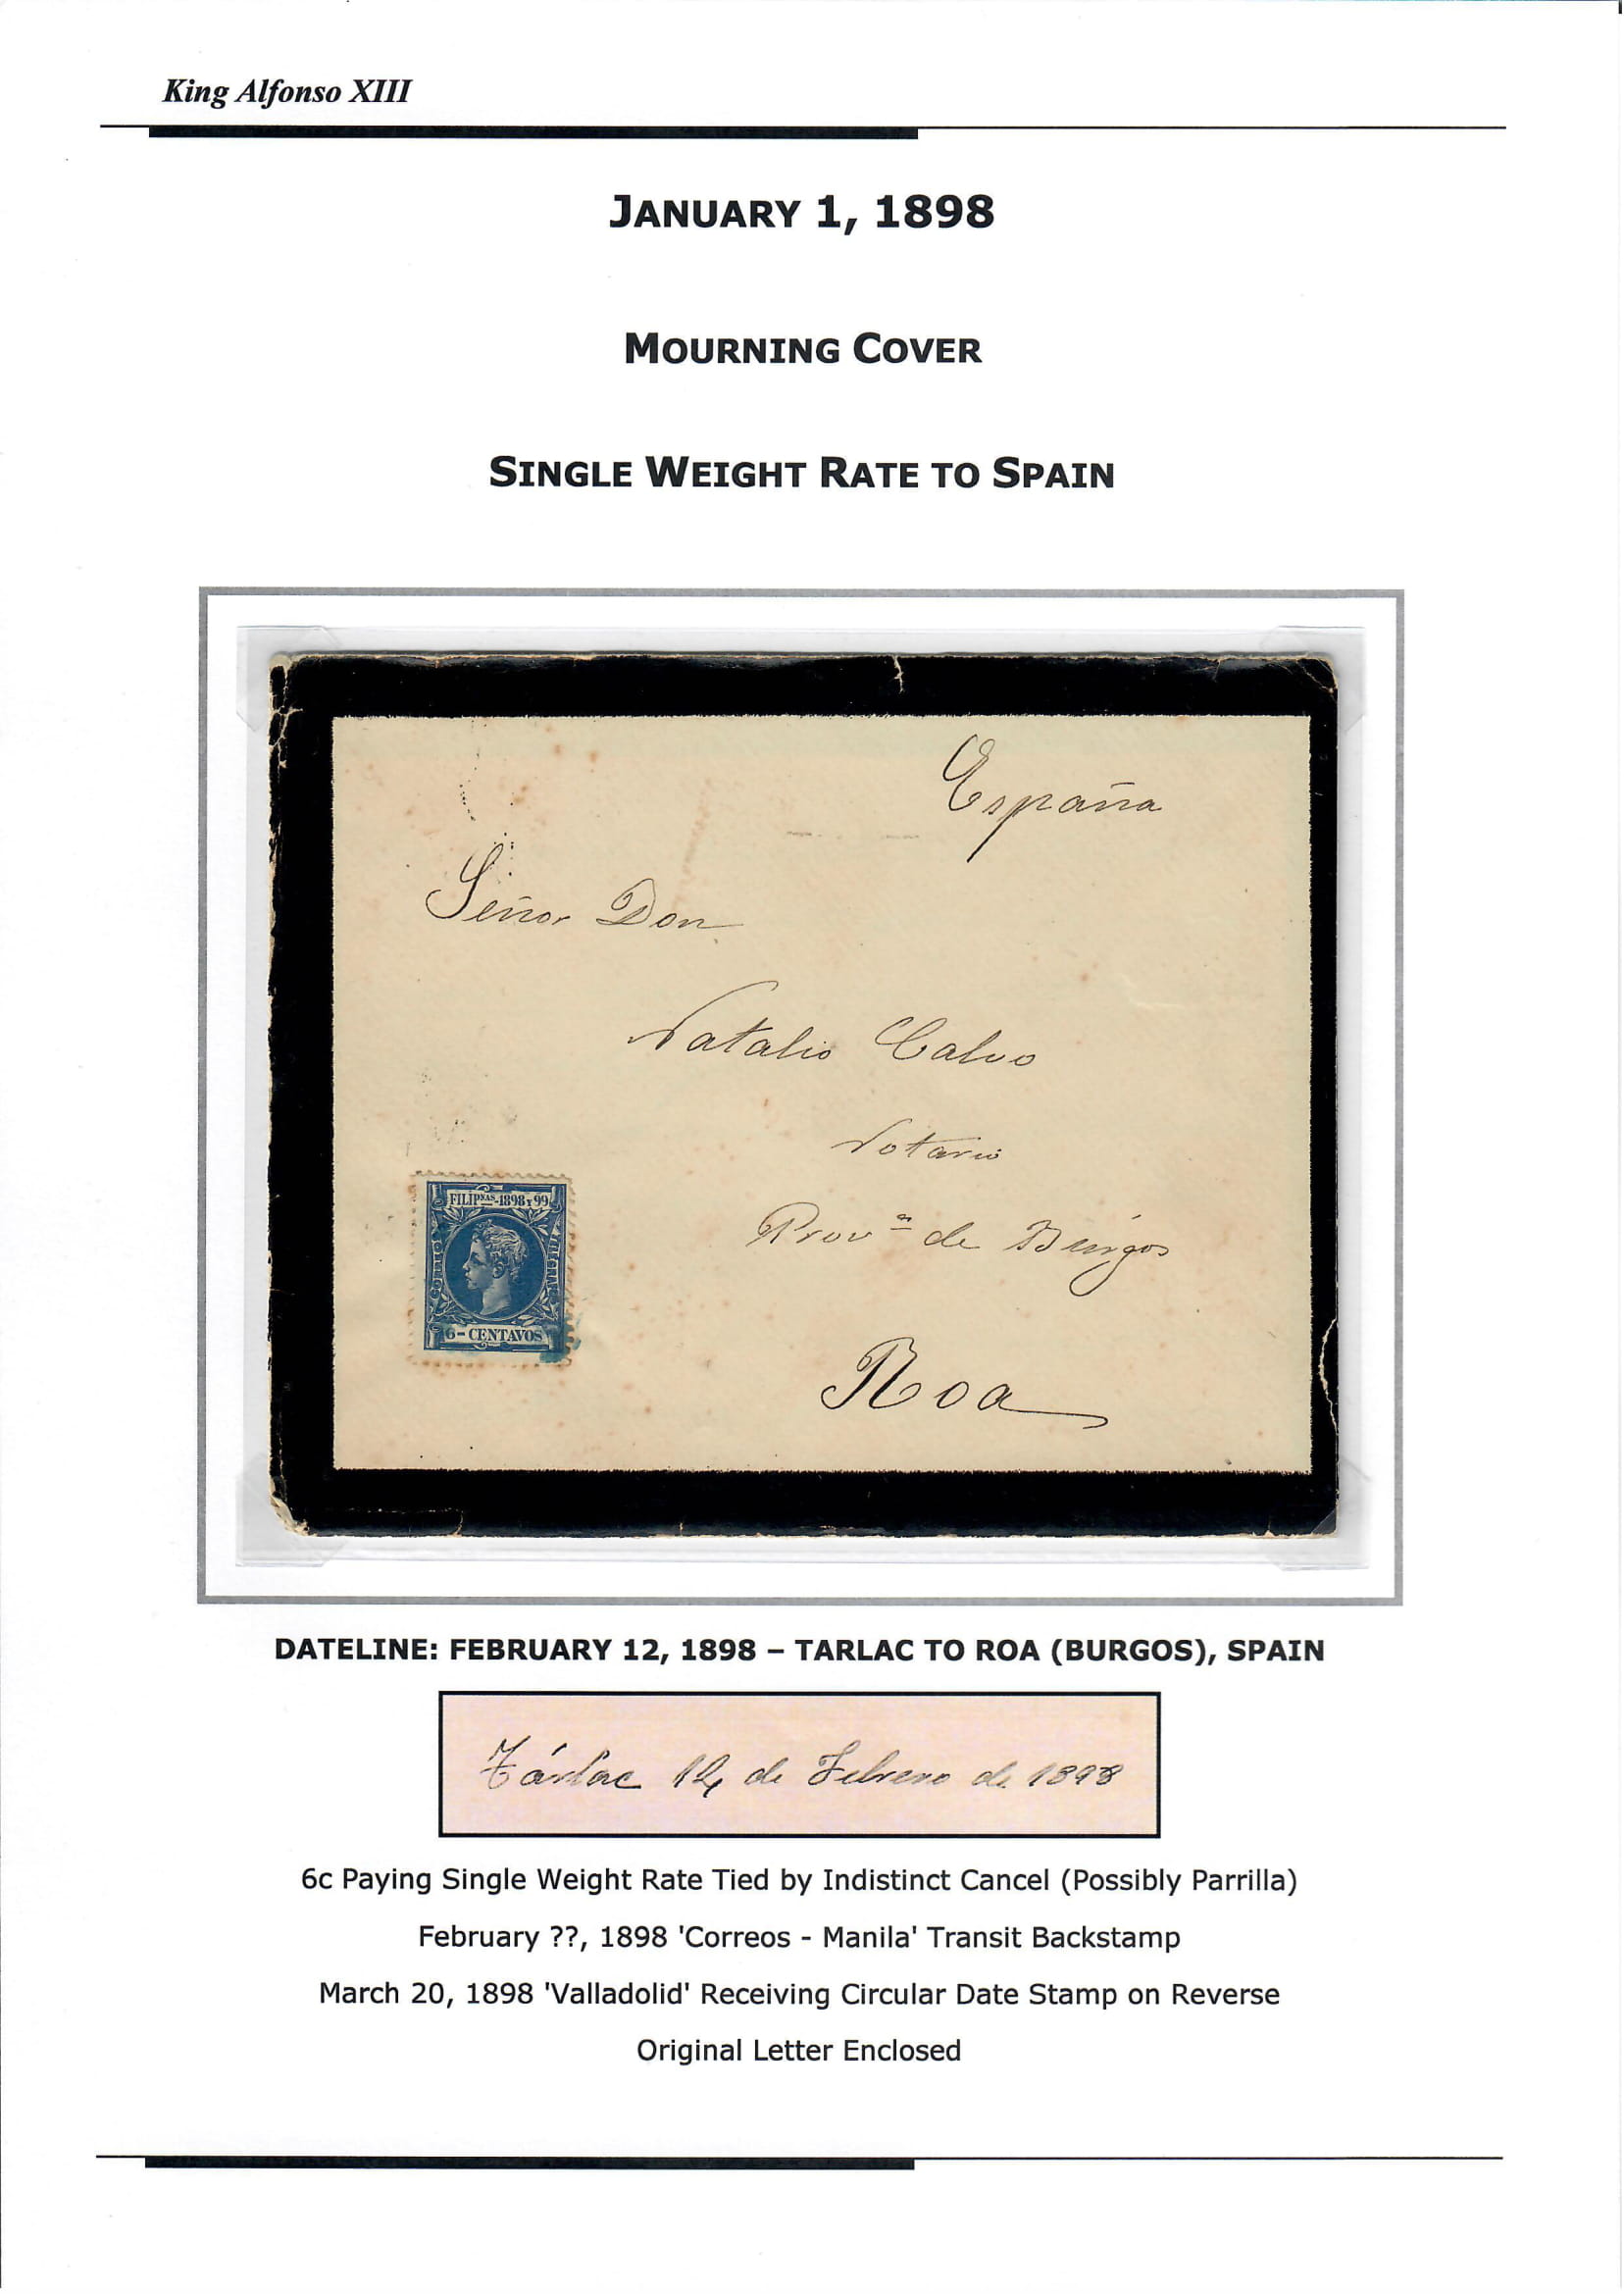 King Alfonso XIII
JANUARY 1, 1898
MOURNING COVER
SINGLE WEIGHT RATE TO SPAIN
España
Señor Don
Natalio Calvo
Notario
Provª de Búrgos
Roa
FILIPNAS-1898 Y 99
6-CENTAVOS
DATELINE: FEBRUARY 12, 1898 – TARLAC TO ROA (BURGOS), SPAIN
Tárlac 12, de Febrero de 1898
6c Paying Single Weight Rate Tied by Indistinct Cancel (Possibly Parrilla)
February ??, 1898 'Correos - Manila' Transit Backstamp
March 20, 1898 'Valladolid' Receiving Circular Date Stamp on Reverse
Original Letter Enclosed